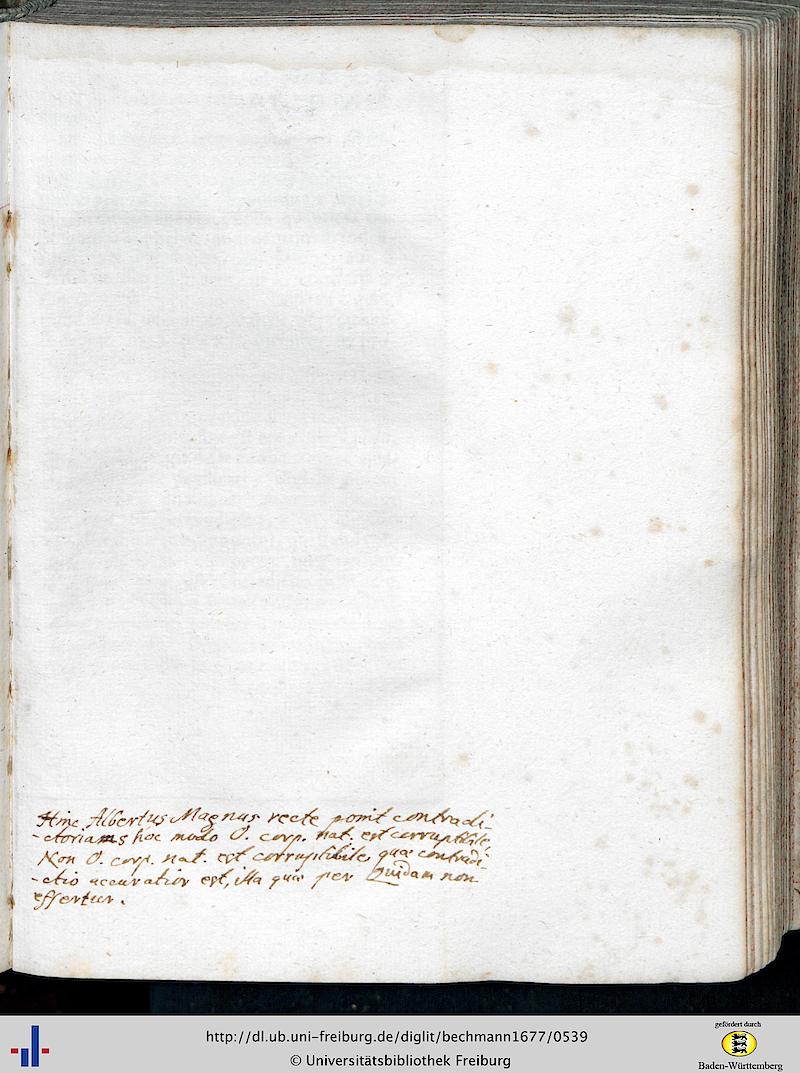 Hinc Albertus Magnus recte ponit contradi-
-ctorias hoc modo O. corp. nat. est corruptibile
Non O. corp. nat. est corruptibile, quæ contradi-
-ctio accuratior est, illa quæ per Quidam non
effertur.
gefördert durch
http://dl.ub.uni-freiburg.de/diglit/bechmann1677/0539
© Universitätsbibliothek Freiburg
Baden-Württemberg